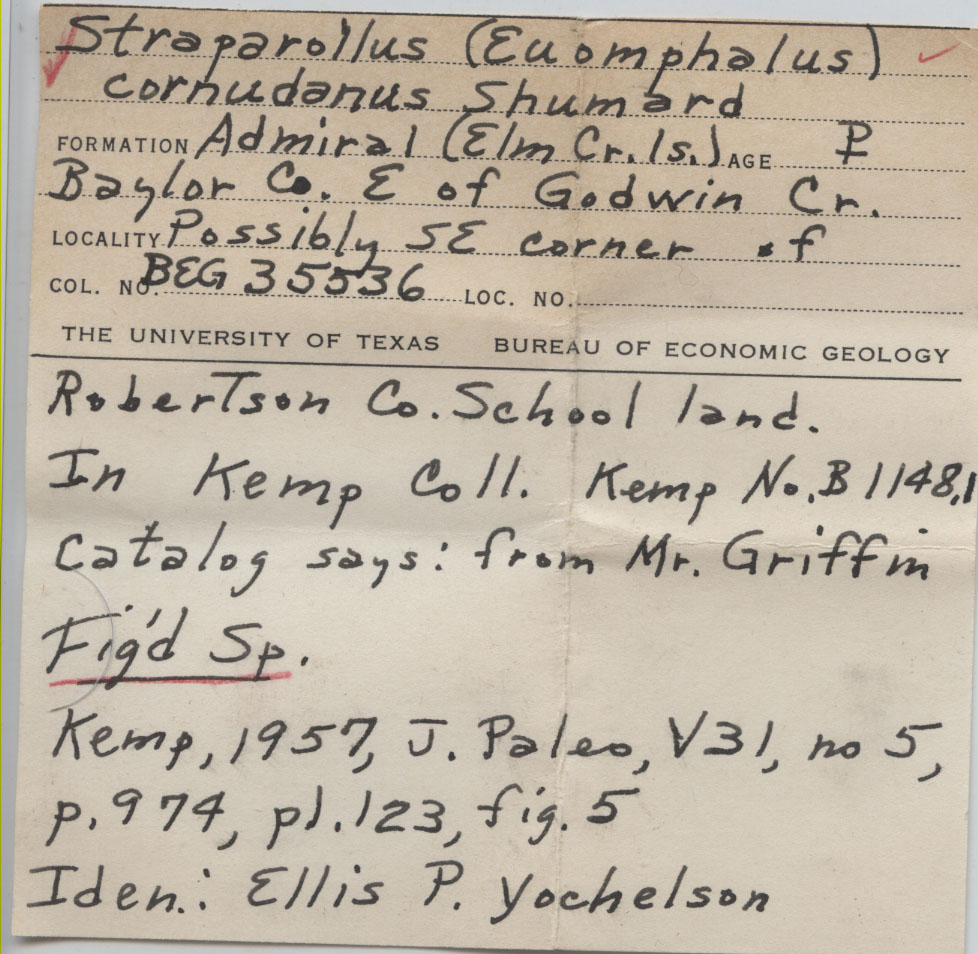 Straparollus (Euomphalus)
cornudanus Shumard
FORMATION Admiral (Elm Cr. ls.) AGE P
Baylor Co. E of Godwin Cr.
LOCALITY Possibly SE corner of
COL. NO. BEG 35536 LOC. NO.
THE UNIVERSITY OF TEXAS BUREAU OF ECONOMIC GEOLOGY
Robertson Co. School land.
In Kemp Coll. Kemp No. B 1148.1
Catalog says: from Mr. Griffin
Fig'd Sp.
Kemp, 1957, J. Paleo, V31, no 5,
p. 974, pl. 123, fig. 5
Iden.: Ellis P. Yochelson